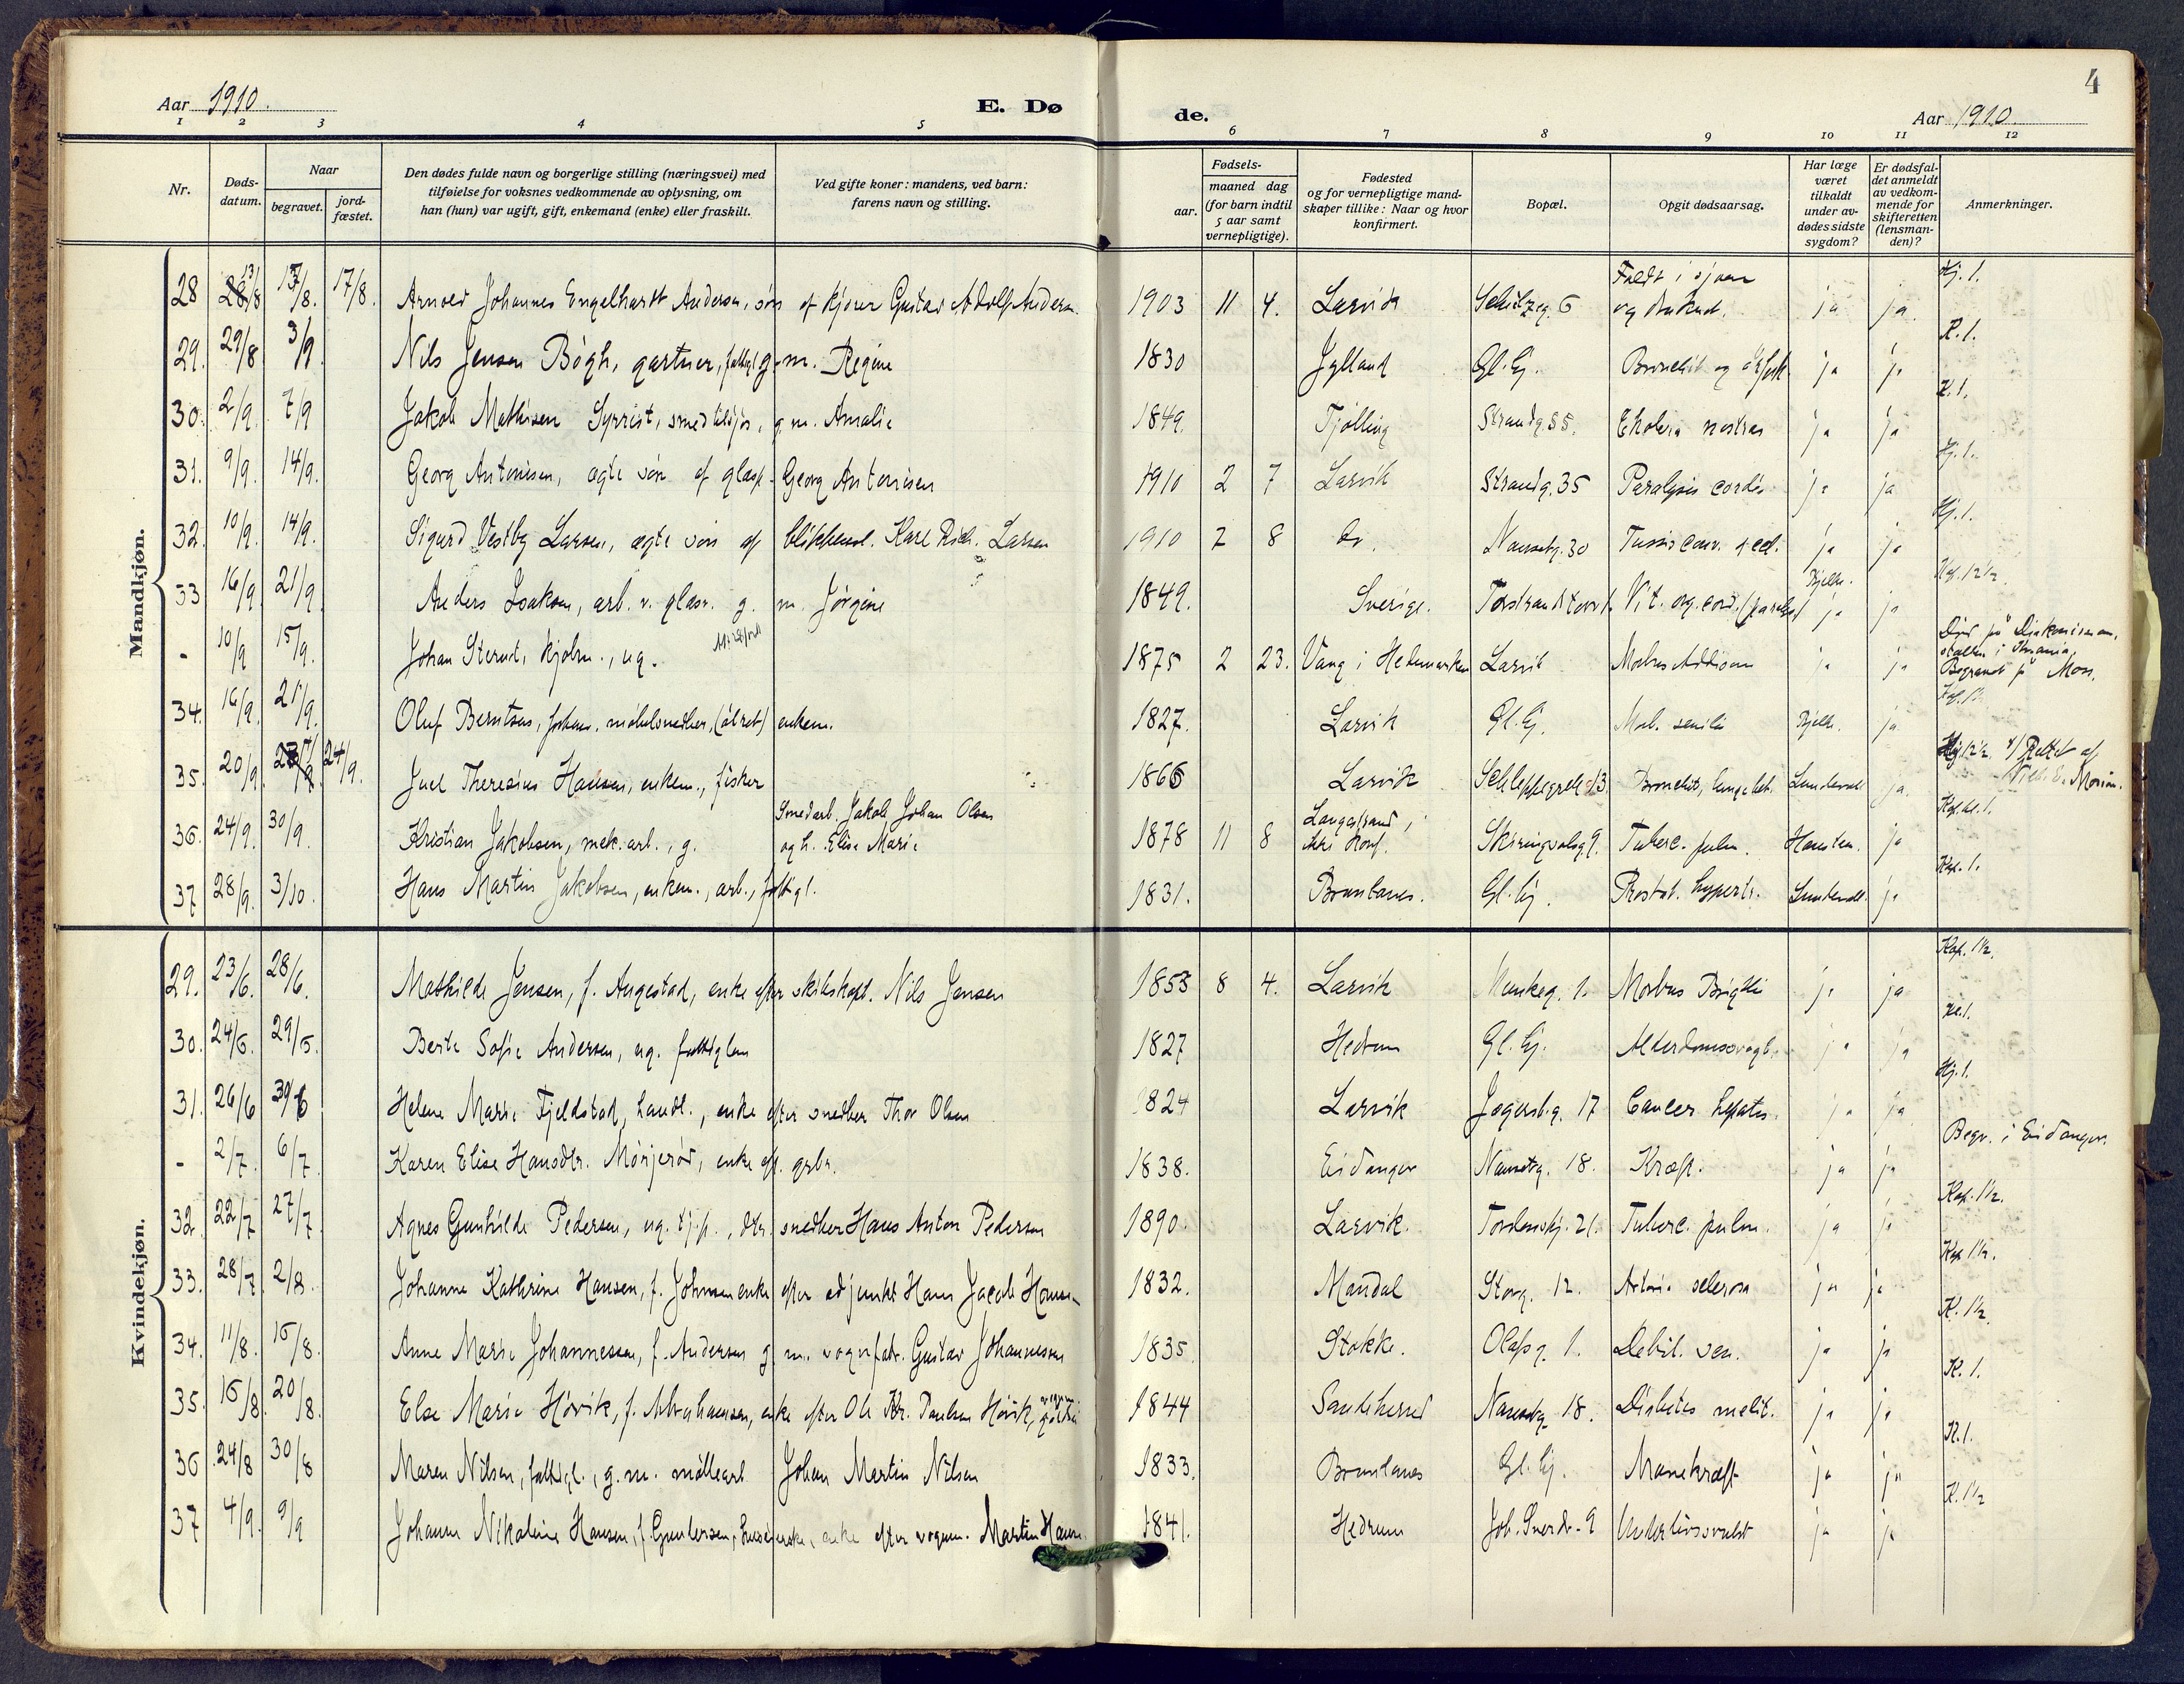 4
Aar 1910.
E. Dø
de.
Aar 1910.
1 2 3 4 5 6 7 8 9 10 11 12
Nr.
Døds-
datum.
Naar
begravet.
jord-
fæstet.
Den dødes fulde navn og borgerlige stilling (næringsvei) med
tilføielse for voksnes vedkommende av oplysning, om
han (hun) var ugift, gift, enkemand (enke) eller fraskilt.
Ved gifte koner: mandens, ved barn:
farens navn og stilling.
Fødsels-
aar.
maaned dag
(for barn indtil
5 aar samt
vernepligtige).
Fødested
og for vernepligtige mand-
skaper tillike: Naar og hvor
konfirmert.
Bopæl.
Opgit dødsaarsag.
Har læge
været
tilkaldt
under av-
dødes sidste
sygdom?
Er dødsfal-
det anmeldt
av vedkom-
mende for
skifteretten
(lensman-
den)?
Anmerkninger.
Mandkjøn.
28 13/8 17/8. Arnold Johannes Engelhardt Andersen, søn af kjører Gustav Adolf Andersn. 1903 11 4. Larvik Schultzeg. 6 Faldt i sjøen og druknet. ja ja. Kj. 1.
29. 29/8 3/9 Nils Jensen Bögh, gartner, fattigl. g. m. Regine 1830 Jylland Gl. Hj. Bronchit og ja ja K. 1.
30. 2/9. 7/9 Jakob Mathisen Syrrist, smed tilsjøs, g. m. Amalie 1849. Tjølling Strandg. 55. Cholera nostras ja ja K. 1.
31. 9/9. 14/9. Georg Antonisen, ægte søn af glasp. Georg Antonisen 1910 2 7 Larvik Strandg. 35 Paralysis cordis ja ja Kj. 1.
32. 10/9. 14/9. Sigurd Vestby Larsen, ægte søn af blikkensl. Karl Rich. Larsen 1910 7 8 do. Nansetg. 30 Tussis conv. ja ja Kj. 1.
33 16/9. 21/9. Anders Isaksen, arb. v. glasv. g. m. Jørgine 1849. Sverige. Torstrandtorv Vit. org. cord. Kjelb. ja ja Kap. 12 1/2.
- 10/9 15/9. Johan Sterud, kjøbm., ug. 1875 2 23. Vang i Hedemarken Larvik Morbus Addison ja ja Død på Diakonissean-
stalten i Kristiania. Begravet på Moss.
34. 16/9. 21/9. Oluf Berntsen, forhen. møbelsnedker, enkem. 1827. Larvik Gl. Hj. Morb. senilis Kjelb. ja
35. 20/9. 24/9. Juel Theresius Hansen, enkem., fisker 1866 Larvik Schleppegrells g. 13. Bronchit, lungebet. Lundevall ja.
Smedarb. Jakob Johan Olsen
36. 24/9. 30/9. Kristian Jakobsen, mek. arb., g. og h. Elise Marie 1878 11 8 Langestrand, ikke konf. Skiringsalsg. 9. Tuberc. pulm. Hansten. ja
37 28/9. 3/10. Hans Martin Jakobsen, enkem., arb., fattigl. 1831. Brunlanes. Gl. Hj. Prostat. hypertr. Lundevall. ja Kap. 1.
Kvindekjøn.
29. 23/6. 28/6. Mathilde Jensen, f. Angestad, enke efter skibskapt. Nils Jensen 1853 8 4. Larvik Munkeg. 1. Morbus Brigthi ja ja Kap. 1 1/2.
30. 24/6. 29/6. Berte Sofie Andersen, ug. fattiglem 1827 Hedrum Gl. Hj. Alderdomssvagh. ja ja K. 1.
31. 26/6 30/6 Helene Marie Fjeldstad, handl., enke efter snedker Thor Olsen 1824 Larvik Jegersbg. 17 Cancer hepatis. ja ja Kj. 1.
- 2/7. 6/7. Karen Elise Hansdtr. Mørjerød, enke eft. grbr. 1838. Eidanger Nansetg. 18. Kræft. ja ja Begr. i Eidanger.
32. 22/7 27/7. Agnes Gunhilde Pedersen, ug. tj.p., dtr. snedker Hans Anton Pedersen 1890. Larvik. Tordenskj. 21. Tuberc. pulm. ja ja Kap. 1 1/2.
33. 28/7. 2/8. Johanne Kathrine Hansen, f. Johnsen enke efter adjunkt Hans Jacob Hansen 1832. Mandal Storg. 12. Arterio sclerosa ja ja Kap 1 1/2.
34. 11/8. 15/8. Anne Marie Johannessen, f. Andersen g. m. vognfabr. Gustav Johannessen 1835. Stokke. Olafsg. 1. Debil. sen. ja ja K. 1 1/2.
35. 15/8. 20/8. Else Marie Hørvik, f. Abrahamsen, enke efter Ole Kr. Paulsen Hørvik, 1844 Sandeherred Nansetg. 18. Diabetes melit. ja ja K. 1.
36 24/8 30/8 Maren Nilsen, fattigl., g. m. møllearb Johan Martin Nilsen 1833. Brunlanes Gl. Hj. Mavekræft ja ja K. 1.
37 4/9. 9/9 Johanne Nikoline Hansen, f. Gundersen, enke efter vognm. Martin Hansen. 1841. Hedrum Joh. Sverdr. 9 Underlivssvulst ja ja K. 1 1/2